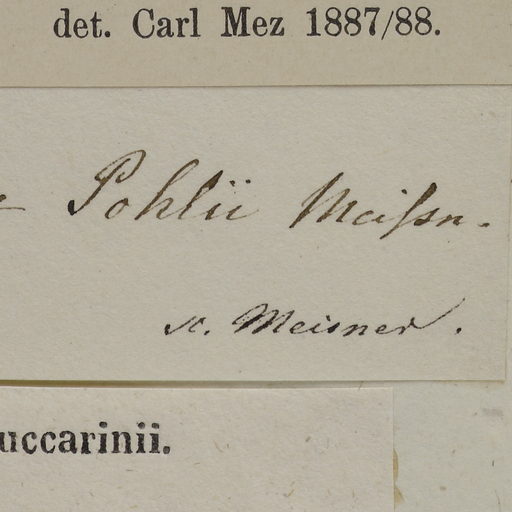 det. Carl Mez 1887/88.
Pohlii Meißn.
Meisner.
uccarinii.